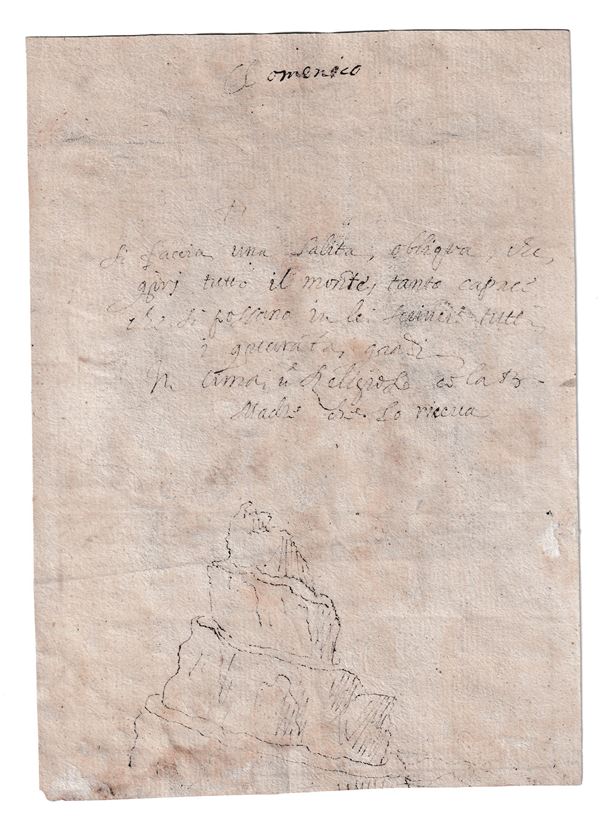 Domenico
Si faccia una salita, obliqua, che,
giri tutto il monte, tanto capace
che si possano in lei scrivere tutti
i gradi
In cima, ū Religioso co la B.
Madre che Lo riceva